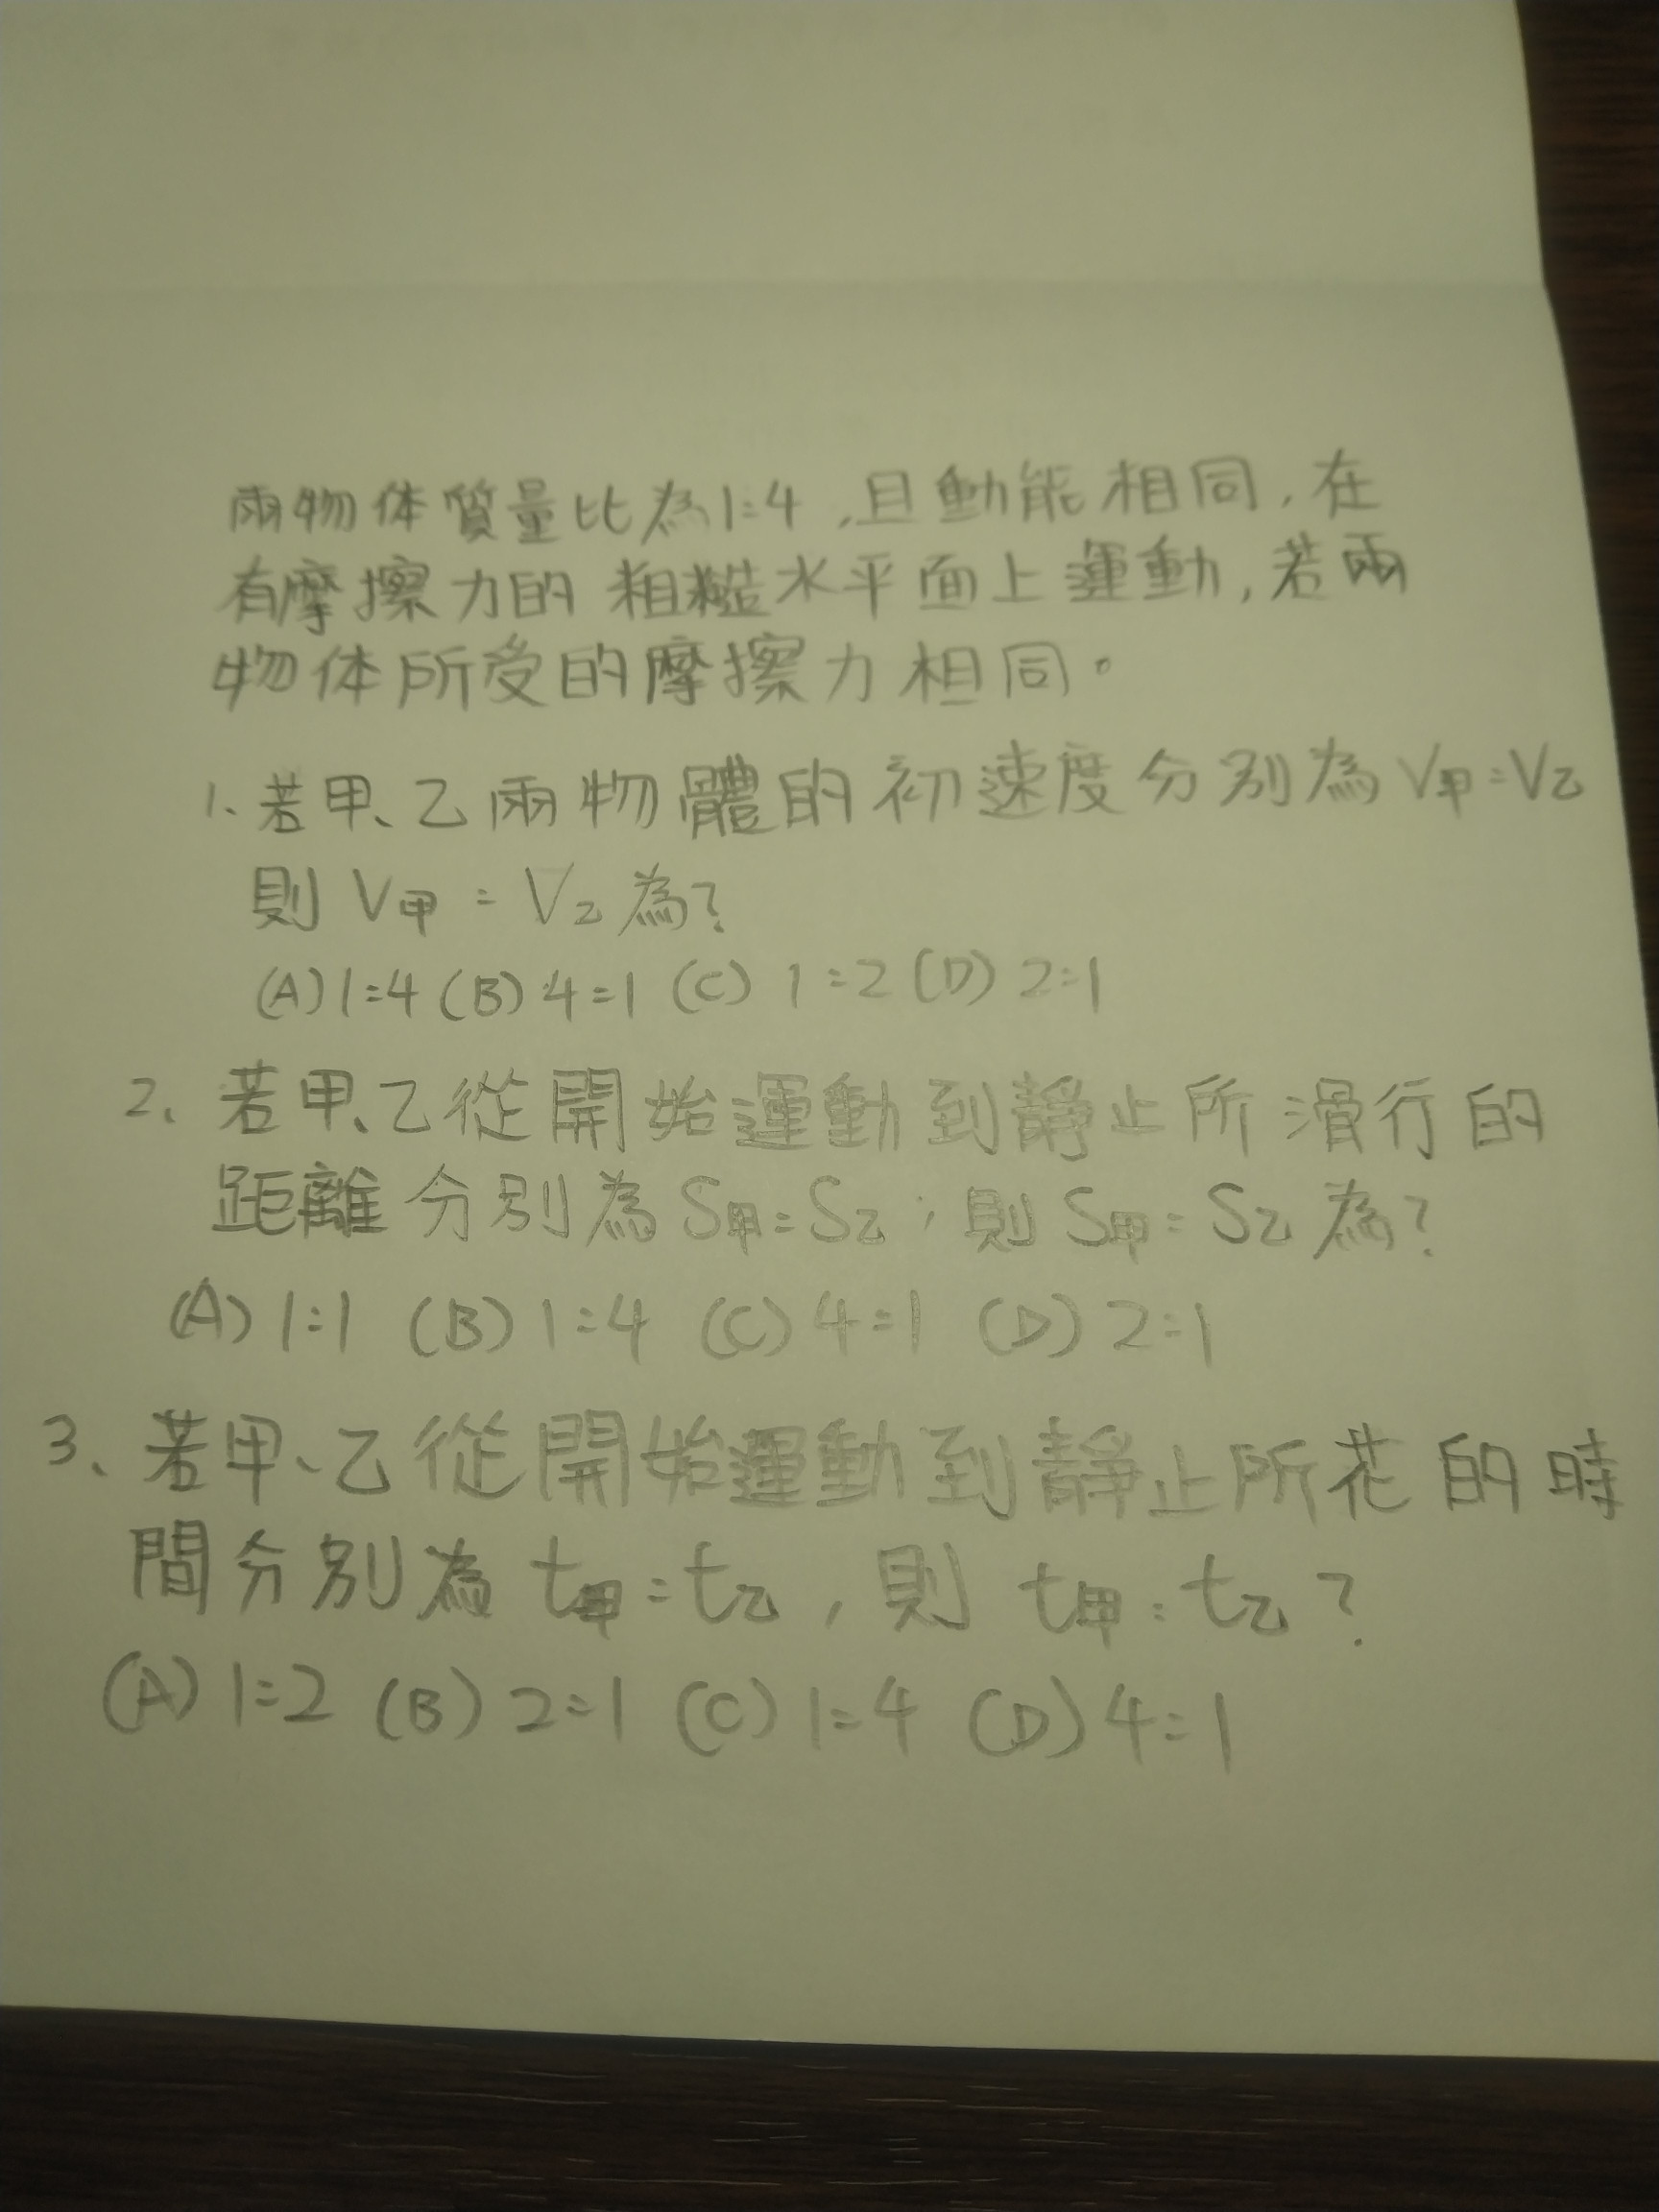 兩物体質量比為1:4,且動能相同,在
有摩擦力的粗糙水平面上運動,若兩
物体所受的摩擦力相同。
1、若甲、乙兩物體的初速度分別為V甲:V乙
則V甲:V乙為?
(A)1:4(B)4:1(C)1:2(D)2:1
2、若甲、乙從開始運動到靜止所滑行的
距離分別為S甲:S乙,則S甲:S乙為?
(A)1:1 (B)1:4 (C)4:1 (D)2:1
3、若甲、乙從開始運動到靜止所花的時
間分別為t甲:t乙,則t甲:t乙?
(A)1:2 (B)2:1 (C)1:4 (D)4:1